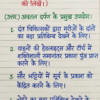 की लिखें।)
(उत्तर) अवतल दर्पण के प्रमुख उपयोग:
1. दंत चिकित्सकों द्वारा मरीजों के दांतों
का बड़ा प्रतिबिंब देखने के लिए।
2. वाहनों की हेडलाइट्स और टॉर्च में
शक्तिशाली समानांतर प्रकाश पुंज प्राप्त
करने के लिए।
3. सौर भट्टियों में सूर्य के प्रकाश को
केंद्रित करने के लिए।